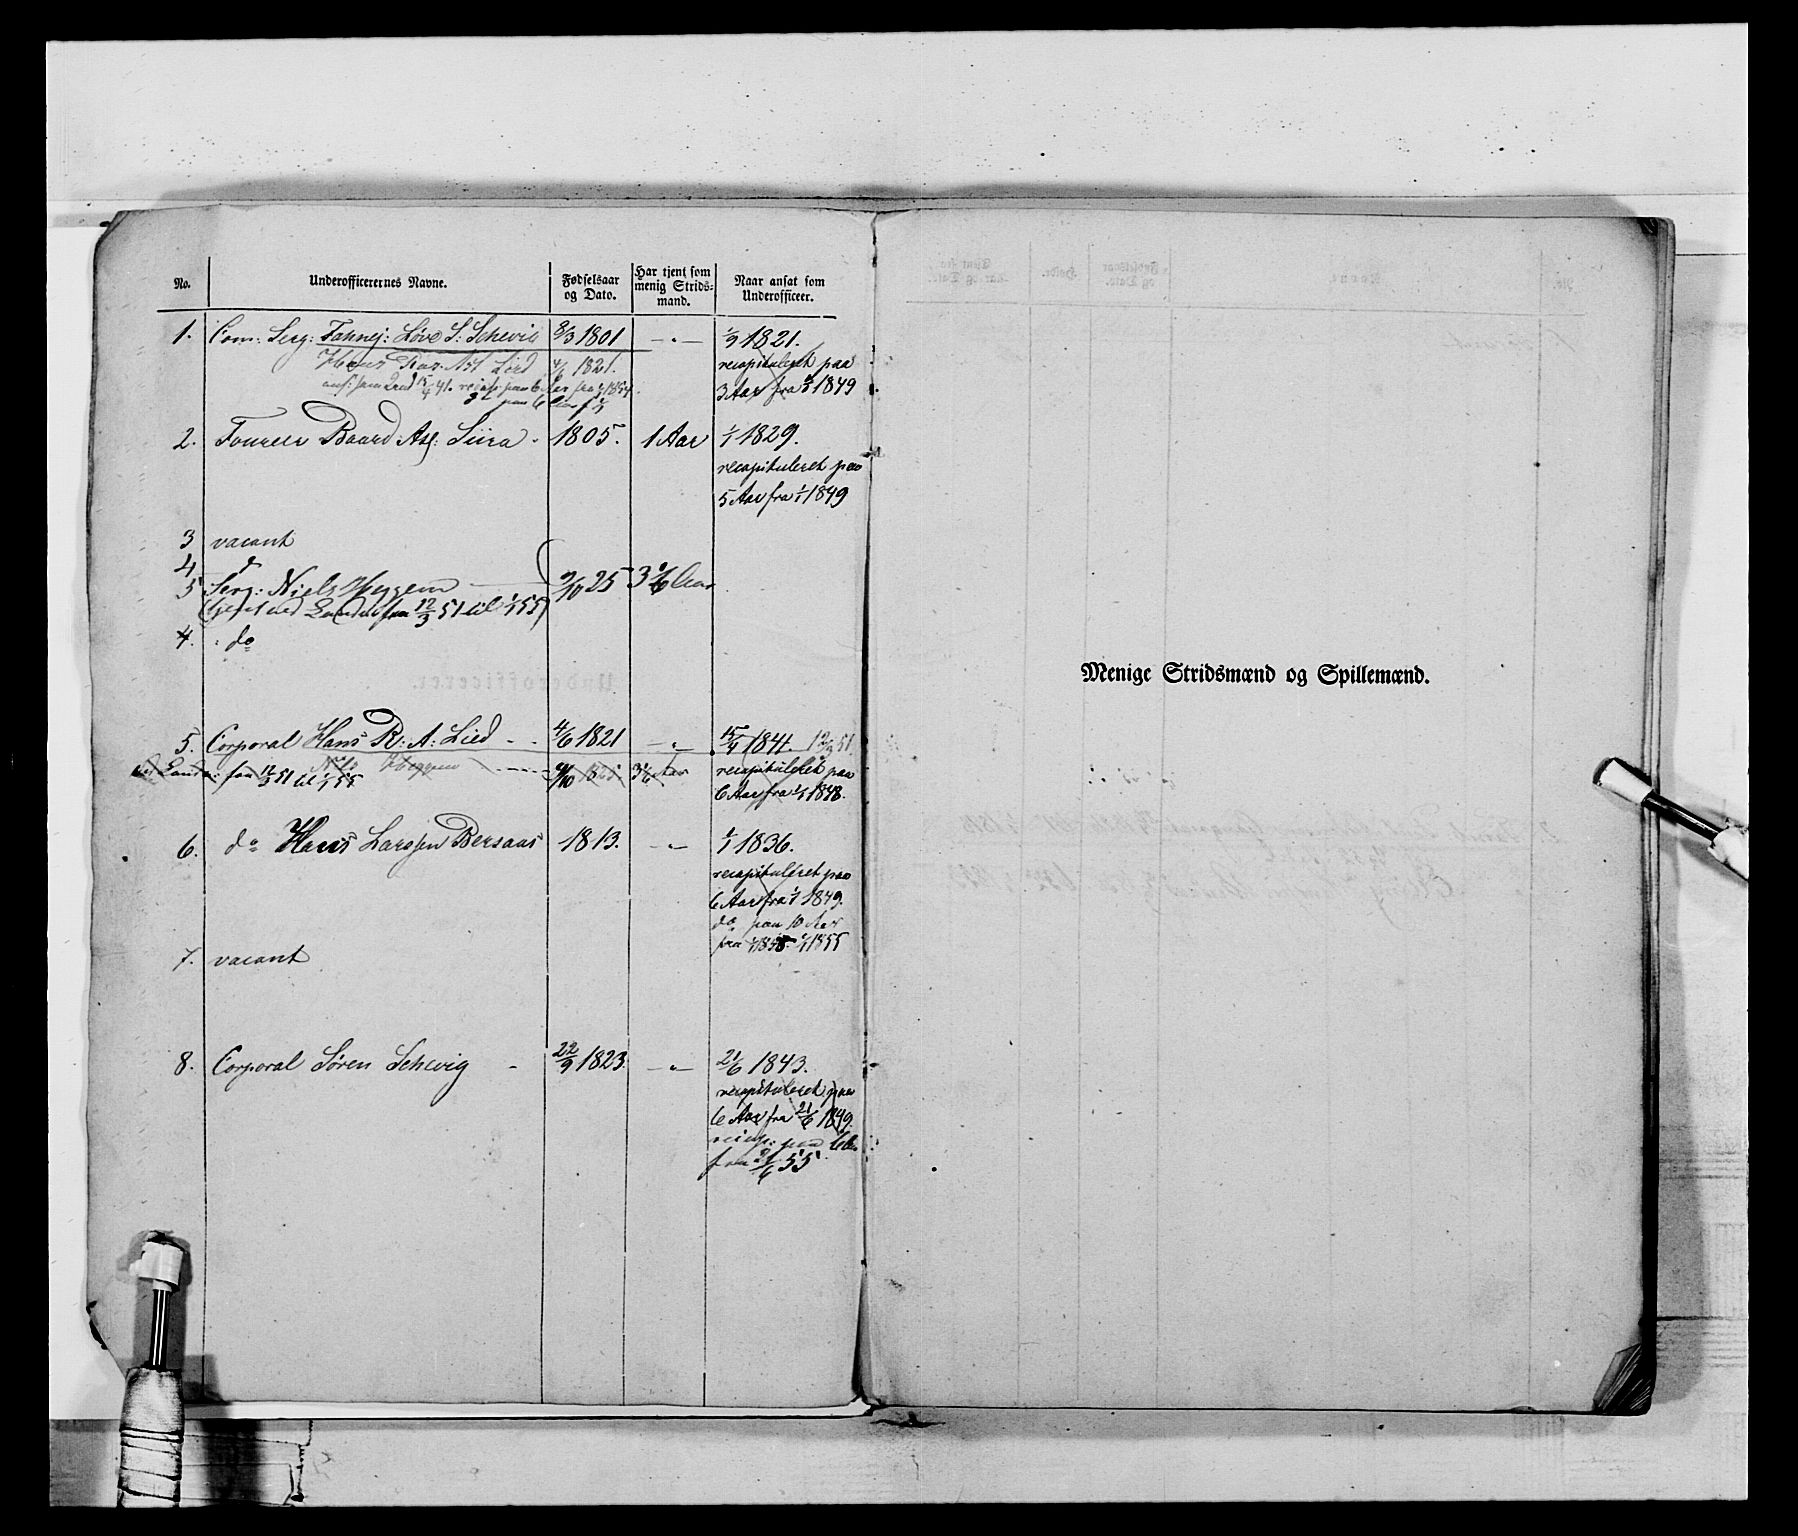 No. Underofficerernes Navne. Fødselsaar og Dato. Har tjent som menig Stridsmand. Naar ansat som Underofficeer.
1. Com: Serg: Fahnej: Løve S: Schevig 8/3 1801 — " — 1/9 1821.
Hans Ras. Ast Lied 4/6 1821. recapituleret paa
3 Aar fra 1/1 1849
2. Foureer Baard Asl: Siira - 1805. 1 Aar 1/1 1829.
recapituleret paa
5 Aar fra 1/1 1849
3 vacant
4 d
5 Serg: Niels Heggem 9/10 25 3 1/6 Aar
fra 12/3 51 til 1/1 55)
4. do
5. Corporal Hans R: A: Lied - - 4/6 1821 — " — 15/4 1841. 12/3 51.
fra 12/3 51 til 1/1 55 Heggem 9/10 3 1/6 Aar recapituleret paa
6 Aar fra 1/1 1848.
6. do Hans Larssen Bersaas 1813. — " — 1/1 1836.
recapituleret paa
6 Aar fra 1/1 1849.
do paa 10 Aar
fra 1/1 1855
7. vacant
8. Corporal Sören Schevig - 22/9 1823. — " — 21/6 1843.
recapituleret paa
6 Aar fra 21/6 1849.
recap: paa 6 Aar
fra 21/6 55
Menige Stridsmænd og Spillemænd.